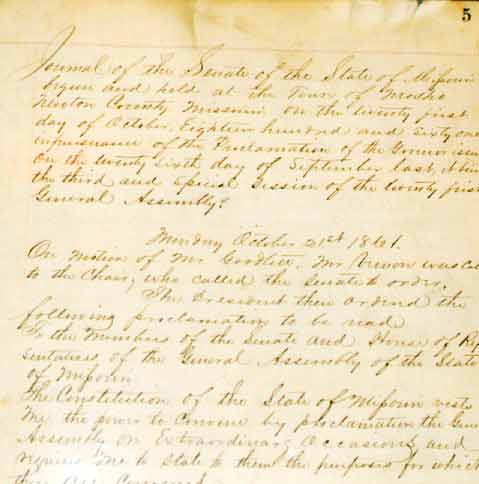 5
Journal of the Senate of the State of Missouri
begun and held at the Town of Neosho
Newton County Missouri on the twenty first
day of October, Eighteen hundred and sixty one
in pursuance of the Proclamation of the Governor issu
on the twenty sixth day of September last, it bein
the third and special session of the twenty first
General Assembly
Monday October 21st 1861.
On motion of Mr Goodlett, Mr Vernon was cal
to the Chair, who called the Senate to order.
The President then ordered the
following proclamation to be read
To the Members of the Senate and House of Rep
sentatives of the General Assembly of the State
of Missouri
The Constitution of the State of Missouri vests
me the power to convene by proclamation the Gene
Assembly on Extraordinary Occasions, and
requires me to state to them the purposes for which
they are convened